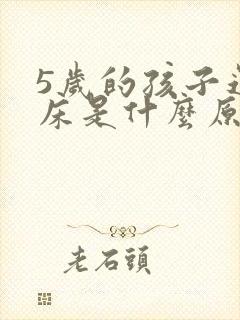 5歲的孩子
床是什麼原
老石頭